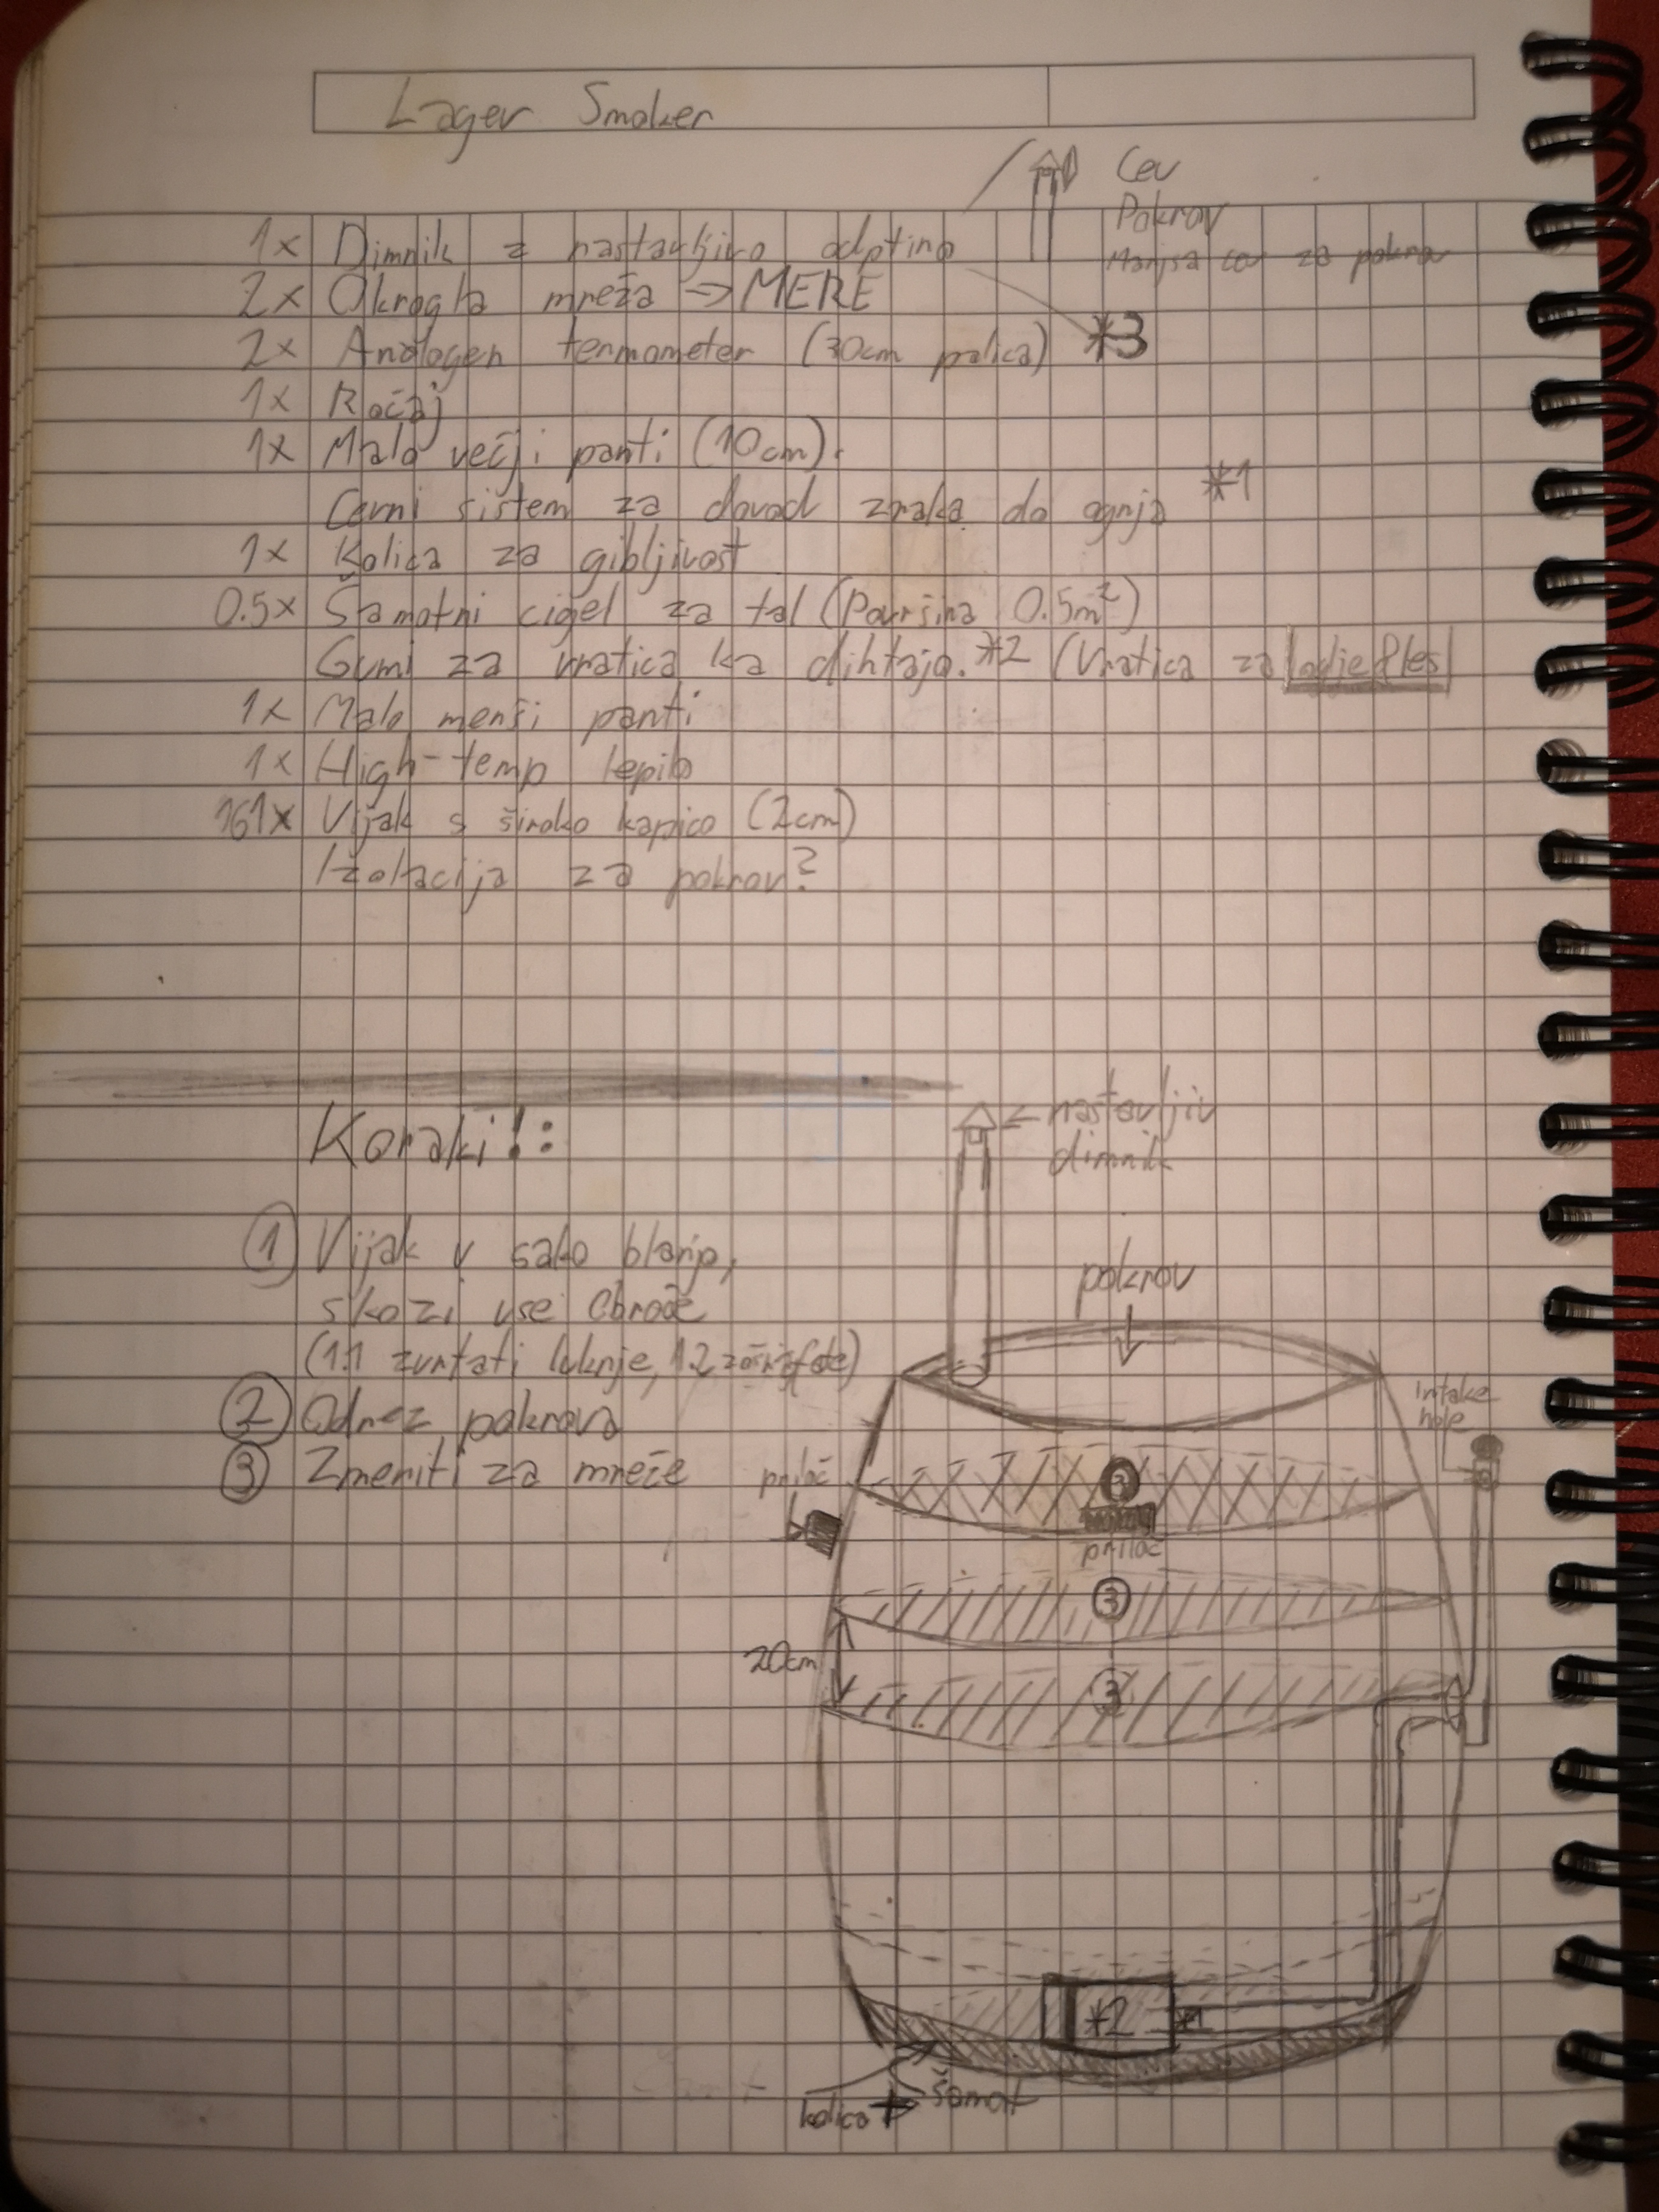 Lager Smoker
Cev
Pokrov
Manjsa cev za pokrov
1x Dimnik z nastavljivo odptino
2x Okrogla mreža → MERE
2x Analogen termometer (30cm palica) *3
1x Ročaj
1x Malo večji panti (10cm).
Cevni sistem za dovod zraka do ognja *1
1x Kolica za gibljivost
0.5x Šamotni cigel za tal (Površina 0.5m²)
Gumi za vratica ka dihtajo. *2 (Vratica za
1x Malo menši panti
1x High-temp lepilo
161x Vijak s široko kapico (2cm)
Izolacija za pokrov?
Koraki!:
← nastavljiv
dimnik
① Vijak v sako blanjo,
skozi vse obroče
(1.1 zvrtati luknje, 1.2
② Odrez pokrova
③ Zmeriti za mreže
pokrov
Intake
hole
priloč
3
priloč
3
20cm
3
*2 *1
kolica
šamot